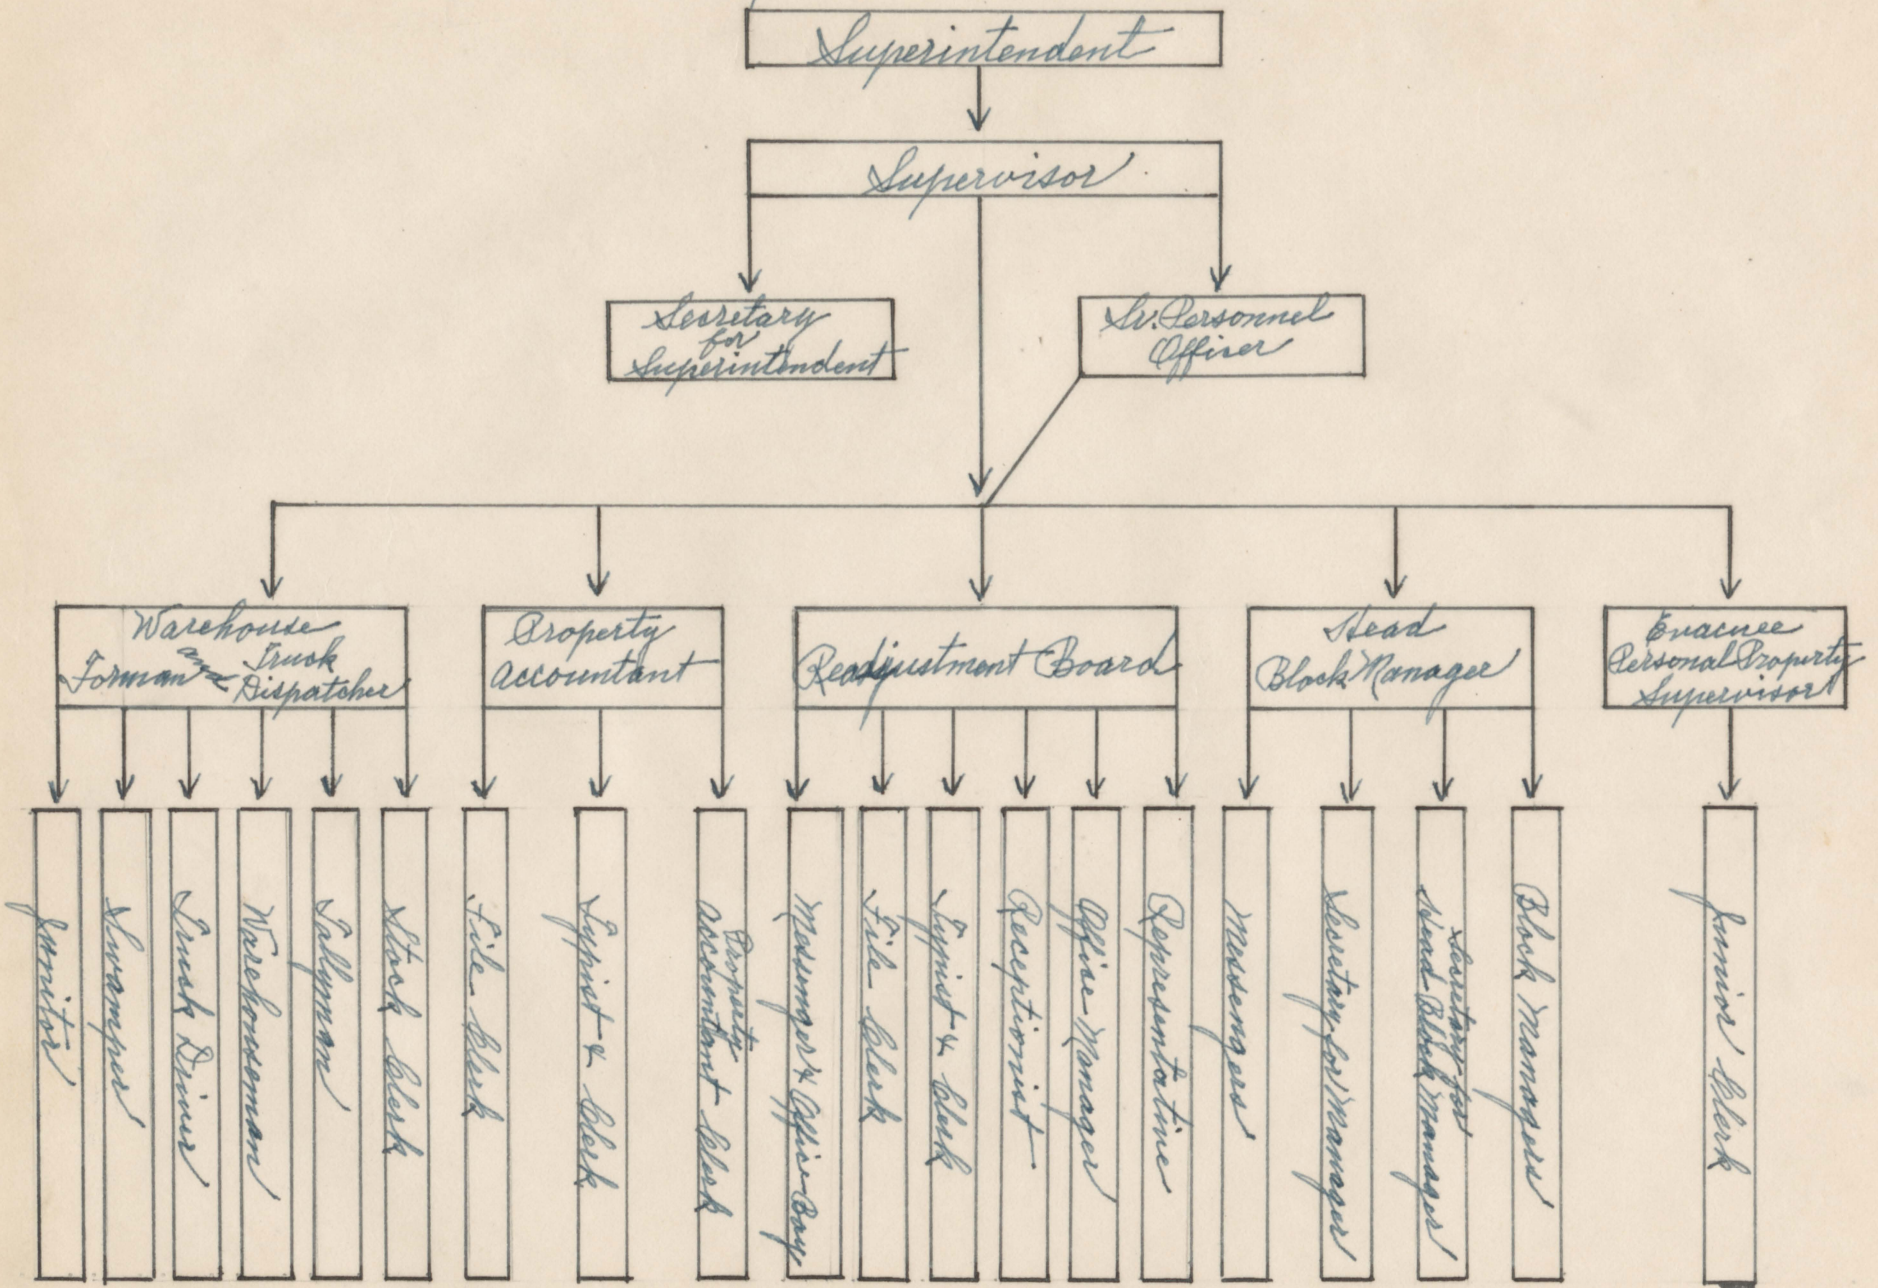 Superintendent
Supervisor
Secretary
for
Superintendent
Sr. Personnel
Officer
Warehouse
Forman and Truck
Dispatcher
Property
Accountant
Readjustment Board
Head
Block Manager
Evacuee
Personal Property
Supervisor
Janitor
Swamper
Truck Driver
Warehouseman
Tallyman
Stock Clerk
File Clerk
Typist & Clerk
Property
Accountant Clerk
Messenger & Office Boy
File Clerk
Typist & Clerk
Receptionist
Office Manager
Representative
Messengers
Secretary for Manager
Secretary for
Head Block Manager
Block Managers
Junior Clerk